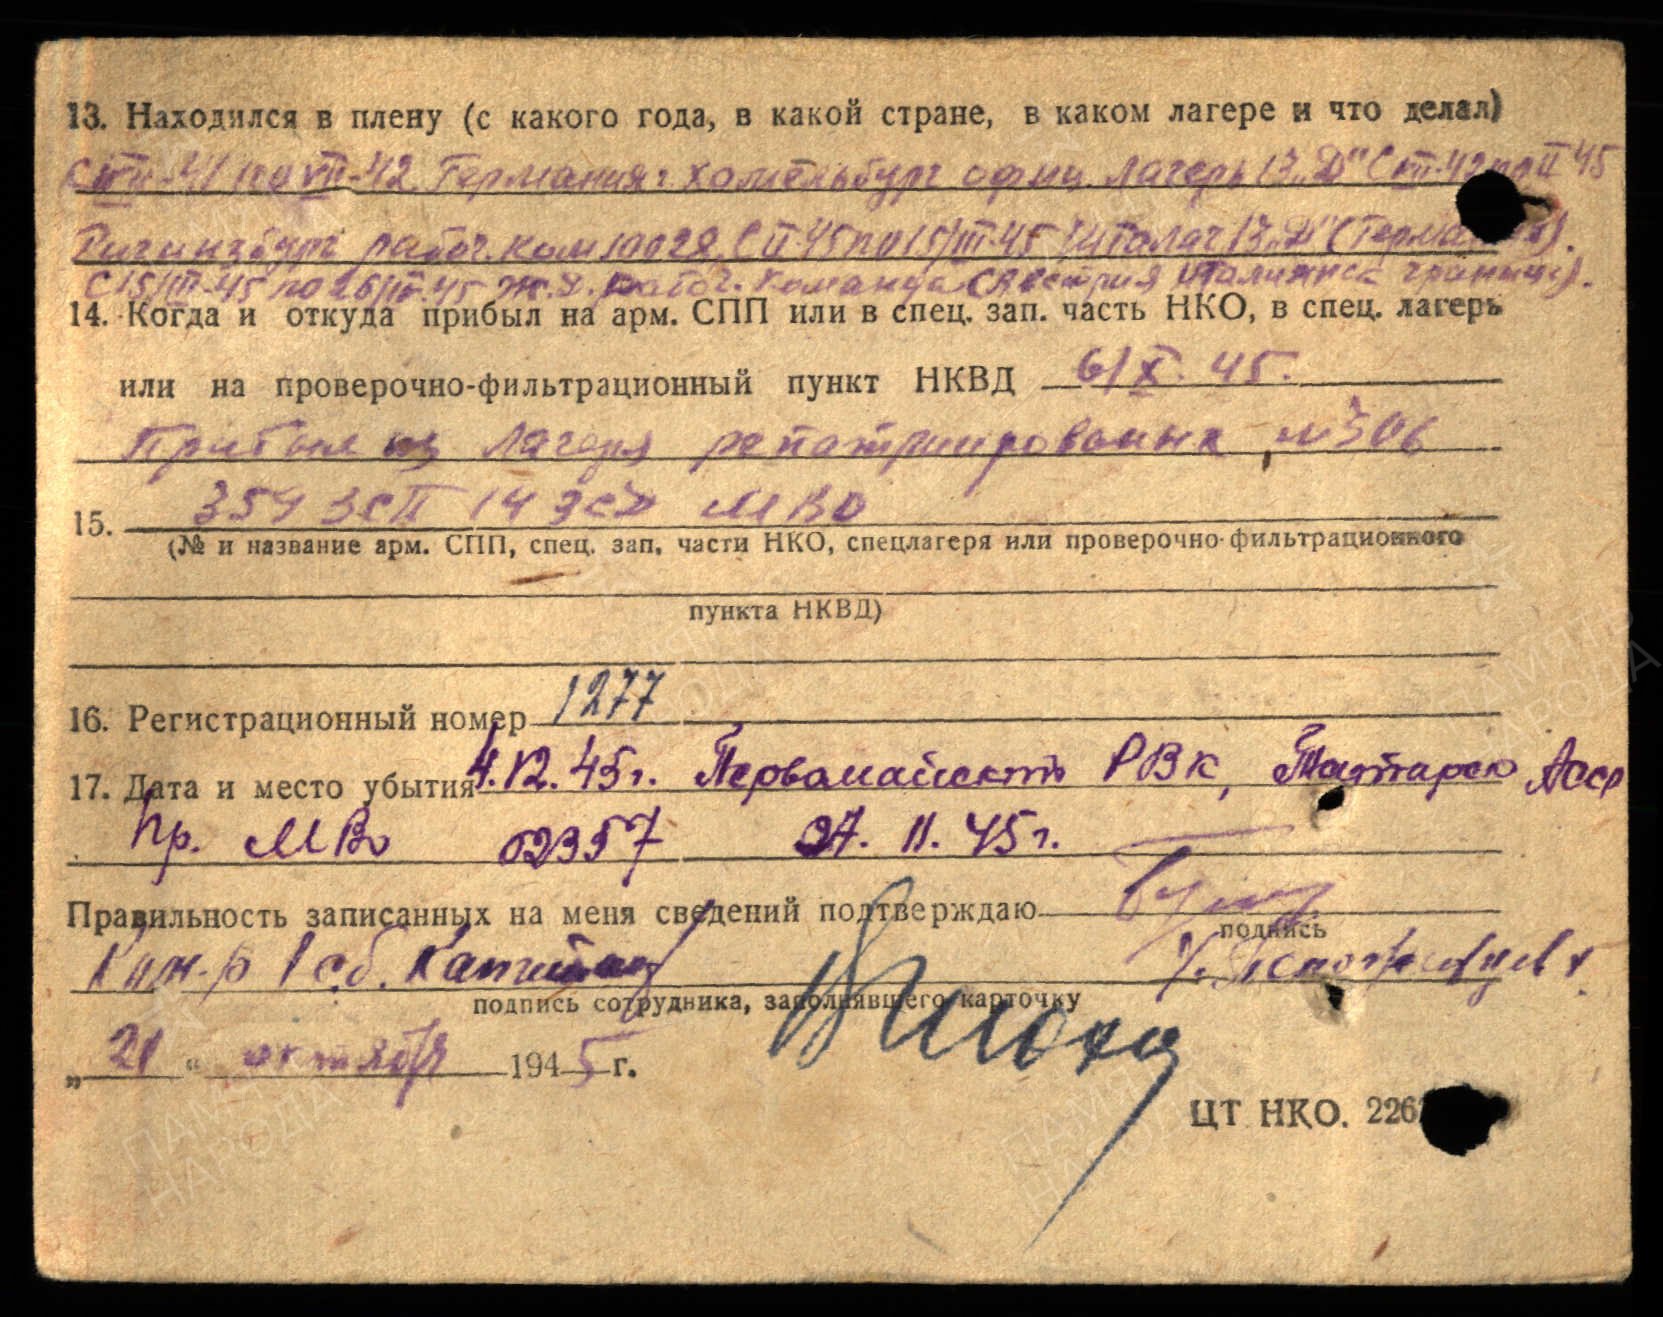 13. Находился в плену (с какого года, в какой стране, в каком лагере и что делал)
-41 по VII-42 Германия г. Хаммельбург офиц. лагерь 13 „Д" С VII-42 по II 45
рабоч. ком 10028. С II-45 по 15/III-45 13 „Д" (Германия).
С 15/III-45 по 26/IV-45 рабоч. команда (Австрия границе).
14. Когда и откуда прибыл на арм. СПП или в спец. зап. часть НКО, в спец. лагерь
или на проверочно-фильтрационный пункт НКВД 6/X. 45.
Прибыл из лагеря репатриированных, №306
15. 354 ЗСП 14 ЗСД МВО
(№ и название арм. СПП, спец. зап. части НКО, спецлагеря или проверочно-фильтрационного
пункта НКВД)
16. Регистрационный номер 1277
17. Дата и место убытия 4.12.45г. РВК, Татарск Асср
Пр. МВо 02357 27. 11. 45г.
Правильность записанных на меня сведений подтверждаю
подпись
К-р 1 сб. Капитан
подпись сотрудника, заполнявшего карточку
„21" октября 1945 г.
ЦТ НКО. 226
ПАМЯТЬ
НАРОДА
ПАМЯТЬ
НАРОДА
ПАМЯТЬ
НАРОДА